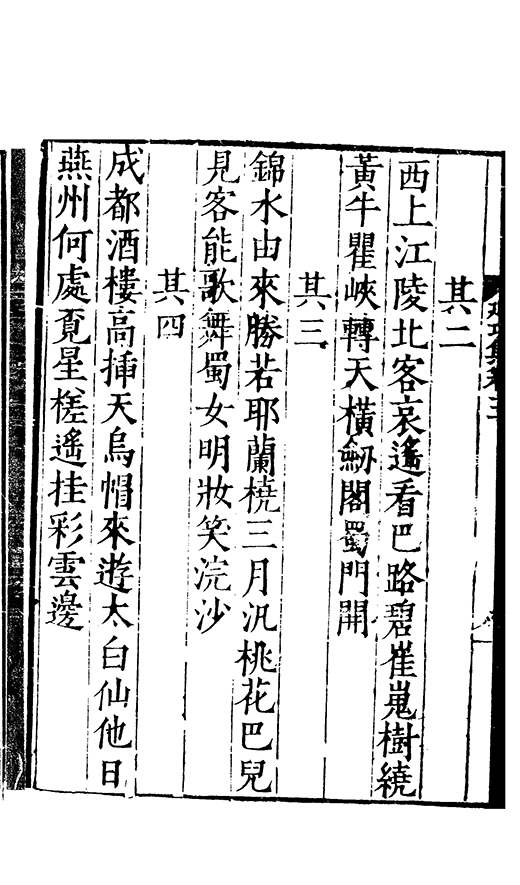 其二
西上江陵北客哀遙看巴路碧崔嵬樹繞
黃牛瞿峽轉天橫劒閣蜀門開
其三
錦水由來勝若耶蘭橈三月汎桃花巴兒
見客能歌舞蜀女明妝笑浣沙
其四
成都酒樓高揷天烏帽來遊太白仙他日
燕州何處覔星槎遙挂彩雲邊